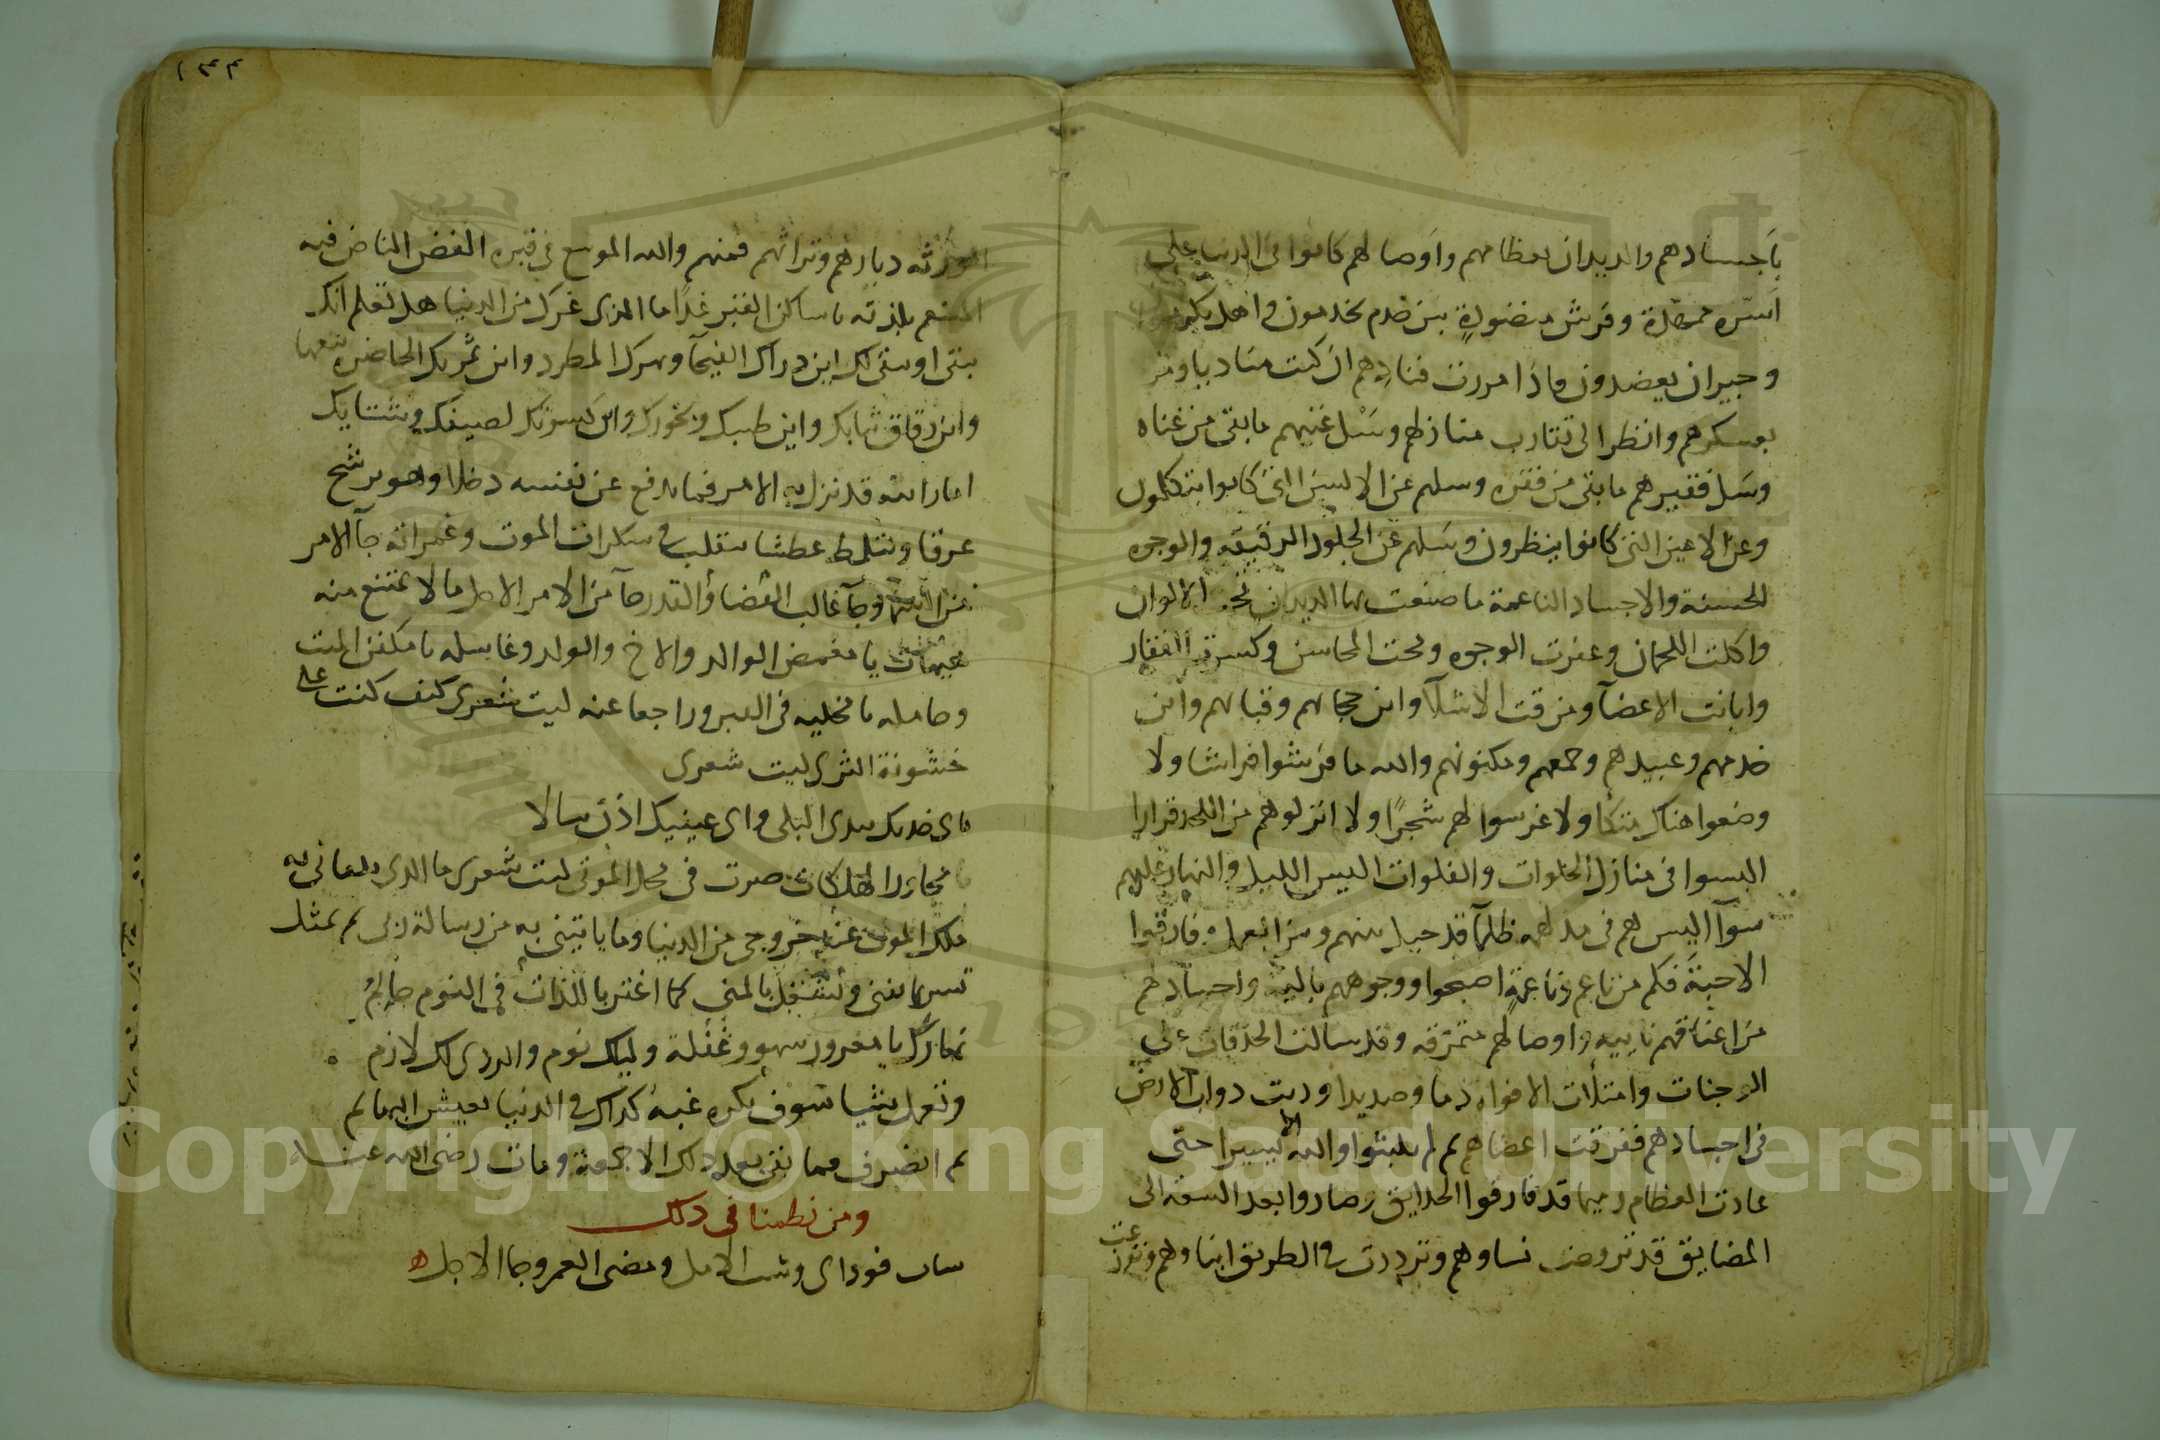 باجسادهم والديدان بعظامهم واوصالهم كانوا في الدنيا على
اسرة ممهدة وفرش منضودة بين خدم يخدمون واهل يكرمون
وجيران يعضدون فاذا مررت فنادهم ان كنت مناديا ومر
بعسكرهم وانظر الى تقارب منازلهم وسل غنيهم ما بقى من غناه
وسل فقيرهم ما بقى من فقره وسلهم عن الالسن التي كانوا يتكلمون
وعن الاعين التي كانوا ينظرون وسلهم عن الجلود الرقيقه والوجوه
الحسنة والاجساد الناعمة ما صنعت بها الديدان الالوان
واكلت اللحمان وعفرت الوجوه ومحت المحاسن وكسرت الفقار
وابانت الاعضآ ومزقت الاشلآ واين حجابهم وقبابهم واين
خدمهم وعبيدهم وجمعهم ومكنونهم والله ما فرشوا فراشا ولا
وضعوا هناك متكأ ولا غرسوا لهم شجرًا ولا انزلوهم من اللحد قرارا
اليسوا في منازل الخلوات والفلوات اليس الليل والنهار عليهم
سوآ اليس هم في مدلهمه ظلمآ قد حيل بينهم وبين العمل وفارقوا
الاحبة فكم من ناعم وناعمة اصبحوا ووجوههم بالية واجسادهم
من اعناقهم نابيه واوصالهم متمزقه وقد سالت الحدقات على
الوجنات وامتلات الافواه دما وصديدا ودبت دواب الارض
في اجسادهم ففرقت اعضاهم ثم لم يلبثوا والله الا يسيرا حتى
عادت العظام رميما قد فارقوا الحدايق وصاروا بعد السعة الى
المضايق قد تزوجت نساوهم وترددت في الطريق ابناوهم وتوزعت
١٣٣
الورثه ديارهم وتراثهم فمنهم والله الموسع في قبره الغض الناضر فيه
المتنعم بلذته يا ساكن القبر غدًا ما الذي غرك من الدنيا هل تعلم انك
تبقى او تبقى لك اين دارك الفيحآ ونهرك المطرد واين ثمرتك الحاضره ينعها
واين رقاق ثيابك واين طيبك وبخورك واين كسوتك لصيفك وشتايك
اما رايته قد نزل به الامر فما يدفع عن نفسه دخلا وهو يرشح
عرقا ويتلمظ عطشا يتقلب في سكرات الموت وغمراته جآ الامر
من السما وجآ غالب القضا والقدر جآ من الامر الاجل ما لا تمتنع منه
هيهات يا مغمض الوالد والاخ والولد وغاسله يا مكفن الميت
وحامله يا مخليه في القبر وراجعا عنه ليت شعري كيف كنت على
خشونة الثرى ليت شعرى
باى خديك بدى البلى واى عينيك اذن سالا
يا مجاور الهلكات صرت في محل الموتى ليت شعرى ما الذى يلقانى به
ملك الموت عند خروجى من الدنيا وما ياتينى به من رسالة ربى ثم تمثل
تسر بما يفنى وتشتغل بالمنى كما اغتر باللذات في النوم حالمُ
نهارك يا مغرور سهو وغفلة وليلك نوم والردى لك لازم
وتعمل شيا سوف تكره غبه كذاك في الدنيا تعيش البهايم
ثم انصرف فما بقى بعد ذلك الا جمعة ومات رضى الله عنه
ومن نظمنا في ذلك
شاب فوداى وشب الامل ومضى العمر وجا الاجل